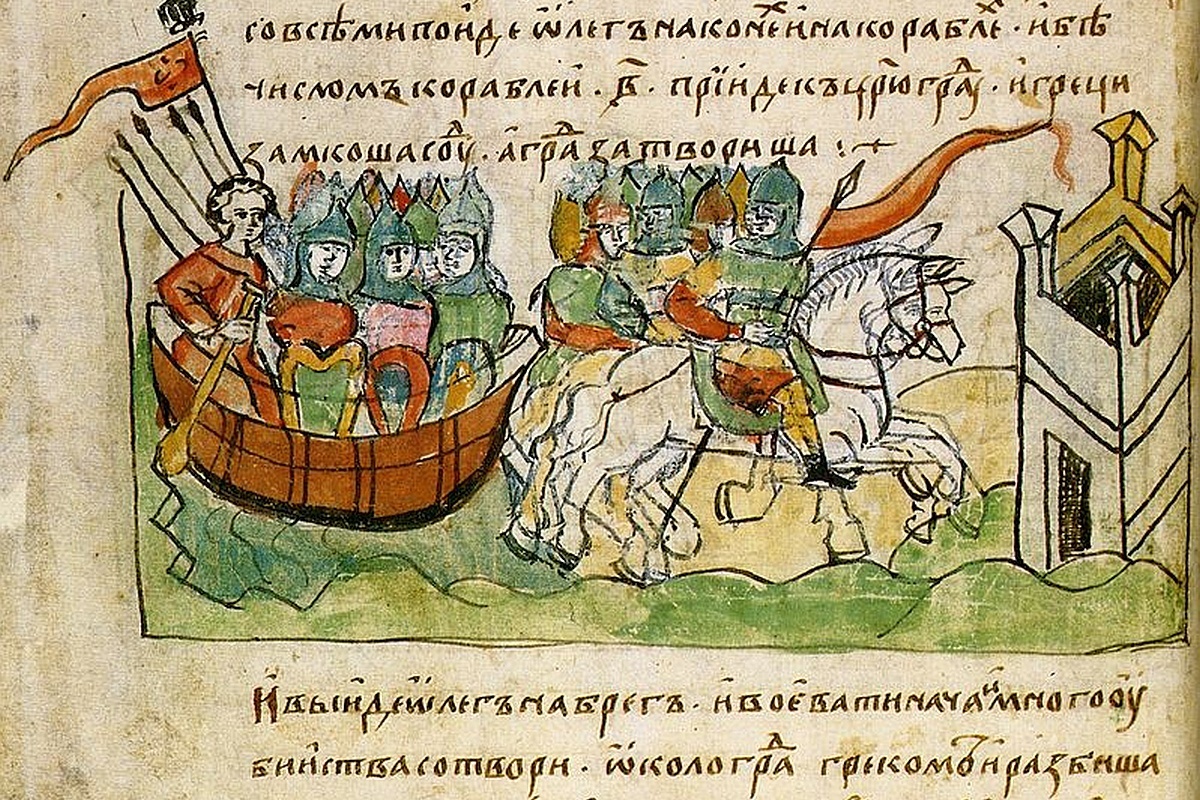 со всѣми поиде ѡлегъ на конеⷯ и на кораблеⷯ · и бѣ
числомъ кораблеи · в҃ · прїиде къ ц҃рюграⷣу · и греци
замкоша соуⷣ · а граⷣ затвориша :~
И выиде ѡлегъ на брегъ · и воевати начаⷩ҇ · и много оу
бииства сотвори · ѡколо граⷣ грекомъ и разбиша